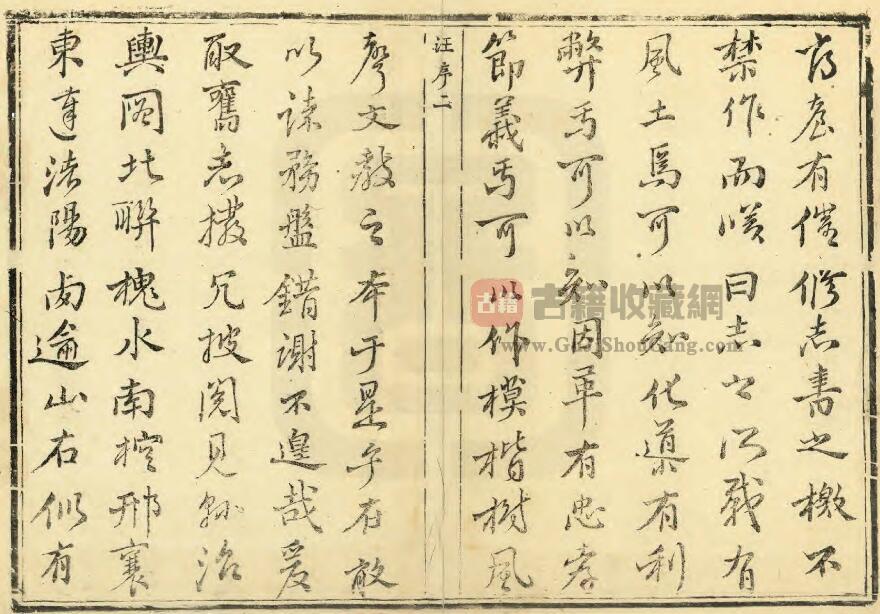 有催修志書之檄不
禁作而嘆曰志之所載有
風土焉可以知化導有利
弊焉可以知因革有忠孝
節義焉可以作模楷樹風
汪序二
聲文教之本于是乎在敢
以務盤錯謝不遑哉爰
取舊志撥冗披閱見縣治
輿圖北聯槐水南控邢襄
東達陽西逾山右似有
古籍 古籍收藏網
www.GuJiShouCang.com